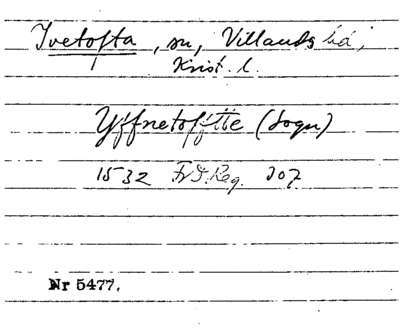 Ivetofta, sn, Villands hd,
Krist. l.
Yffnetofftte (Sogn)
1532 Fr I. Reg. 307
Nr 5477.